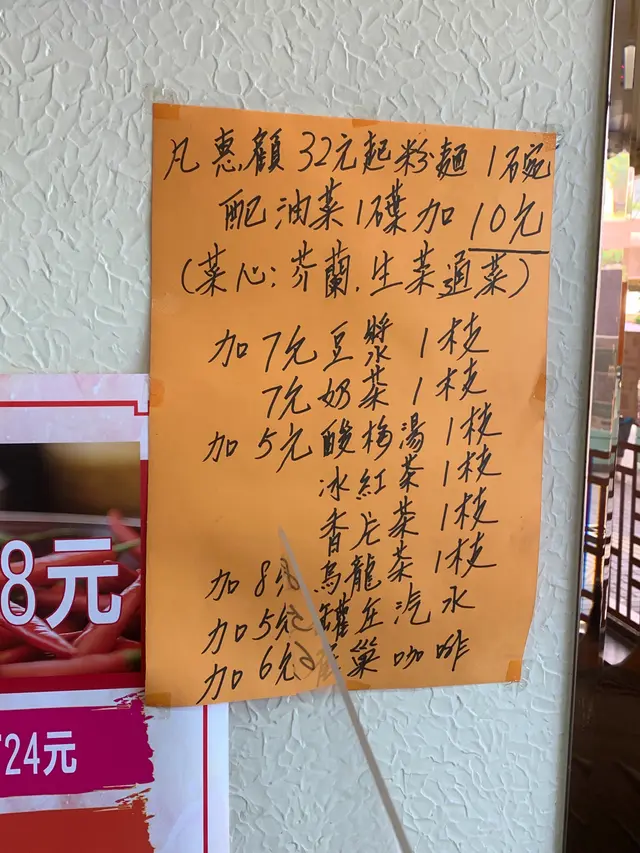 凡惠顧32元起粉麵1碗
配油菜1碟加10元
(菜心:芥蘭.生菜通菜)
加7元豆漿1枝
7元奶茶1枝
加5元酸梅湯1枝
冰紅茶1枝
香片茶1枝
加8元烏龍茶1枝
加5元罐庄汽水
加6元巢咖啡
8元
24元